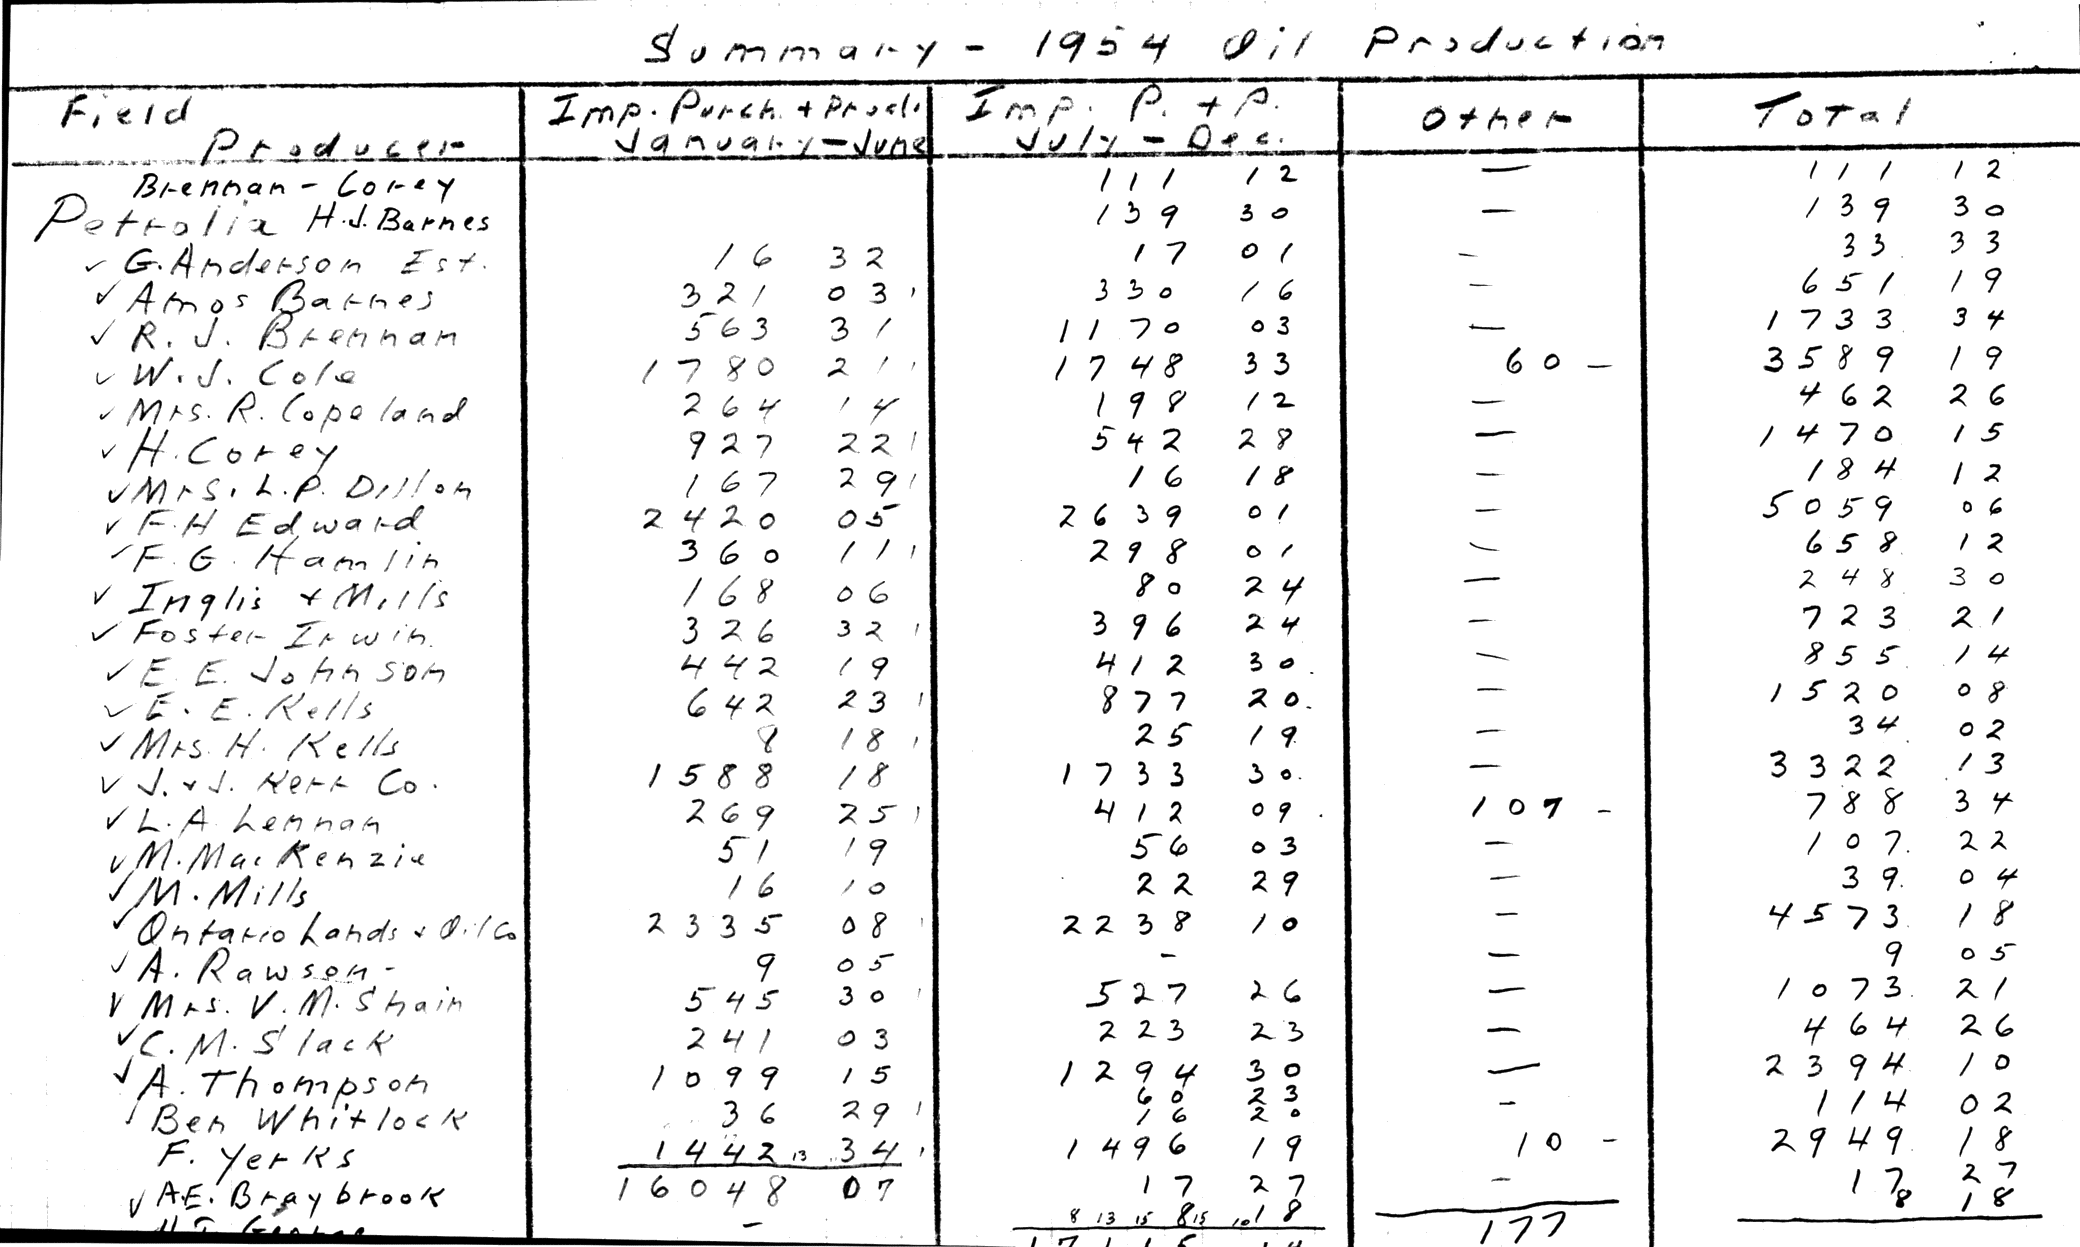 Summary - 1954 Oil Production
Field Producer Imp. Purch. + Prod. January - June Imp. P. + P. July - Dec. Other Total
Brennan - Corey 111 12 — 111 12
Petrolia H.J. Barnes 139 30 — 139 30
✓ G. Anderson Est. 16 32 17 01 - 33 33
✓ Amos Barnes 321 03 330 16 - 651 19
✓ R. J. Brennan 563 31 1170 03 — 1733 34
✓ W. J. Cole 1780 21 1748 33 60 - 3589 19
✓ Mrs. R. Copeland 264 14 198 12 — 462 26
✓ H. Corey 927 22 542 28 — 1470 15
✓ Mrs. L. P. Dillon 167 29 16 18 - 184 12
✓ F. H Edward 2420 05 2639 01 - 5059 06
✓ F. G. Hamlin 360 11 298 01 - 658 12
✓ Inglis + Mills 168 06 80 24 — 248 30
✓ Foster Irwin 326 32 396 24 - 723 21
✓ E. E. Johnson 442 19 412 30 - 855 14
✓ E. E. Kells 642 23 877 20 - 1520 08
✓ Mrs. H. Kells 8 18 25 19 - 34 02
✓ J. + J. Kerr Co. 1588 18 1733 30 - 3322 13
✓ L. A. Lennan 269 25 412 09 107 - 788 34
✓ M. MacKenzie 51 19 56 03 - 107 22
✓ M. Mills 16 10 22 29 - 39 04
✓ Ontario Lands + Oil Co 2335 08 2238 10 - 4573 18
✓ A. Rawson - 9 05 - — 9 05
✓ Mrs. V. M. Shain 545 30 527 26 — 1073 21
✓ C. M. Slack 241 03 223 23 — 464 26
✓ A. Thompson 1099 15 1294 30 — 2394 10
✓ Ben Whitlock 36 29 60 23 16 20 - 114 02
F. Yerks 1442 13 34 1496 19 10 - 2949 18
✓ A.E. Braybrook 16048 07 17 27 - 17 27
- 8 13 15 8 15 10 18 177 8 18